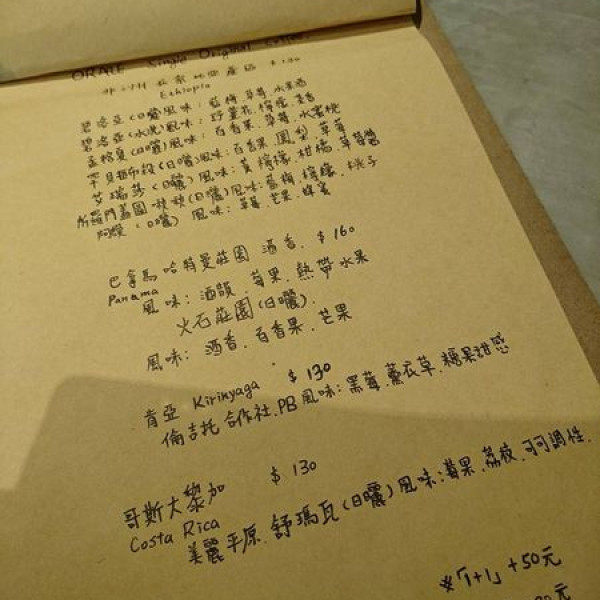 ORACLE Single Original Coffee
非洲 衣索比亞產區 $130
Ethiopia
碧洛亞(日曬)風味:藍莓.草莓.水果酒
碧洛亞(水洗)風味:野薑花.檸檬.
孟格夏(日曬)風味:百香果.草莓.水蜜桃
罕貝拉布穀(日曬)風味:百香果.鳳梨.草莓
艾瑞莎(日曬)風味:黃檸檬.柑橘.草莓醬
所羅門蓋圖 (日曬)風味:藍莓.檸檬.桃子
(日曬) 風味:草莓.芒果.蜂蜜
巴拿馬 哈特曼莊園 酒香.$160
Panama
風味:酒韻.莓果.熱帶水果
火石莊園(日曬).
風味:酒香.百香果.芒果
肯亞 Kirinyaga $130
倫吉托 合作社.PB 風味:黑莓.薰衣草.糖果甜感
哥斯大黎加 $130
Costa Rica
美麗平原.舒瑪瓦(日曬)風味:莓果.荔枝.可可調性.
※「1+1」+50元